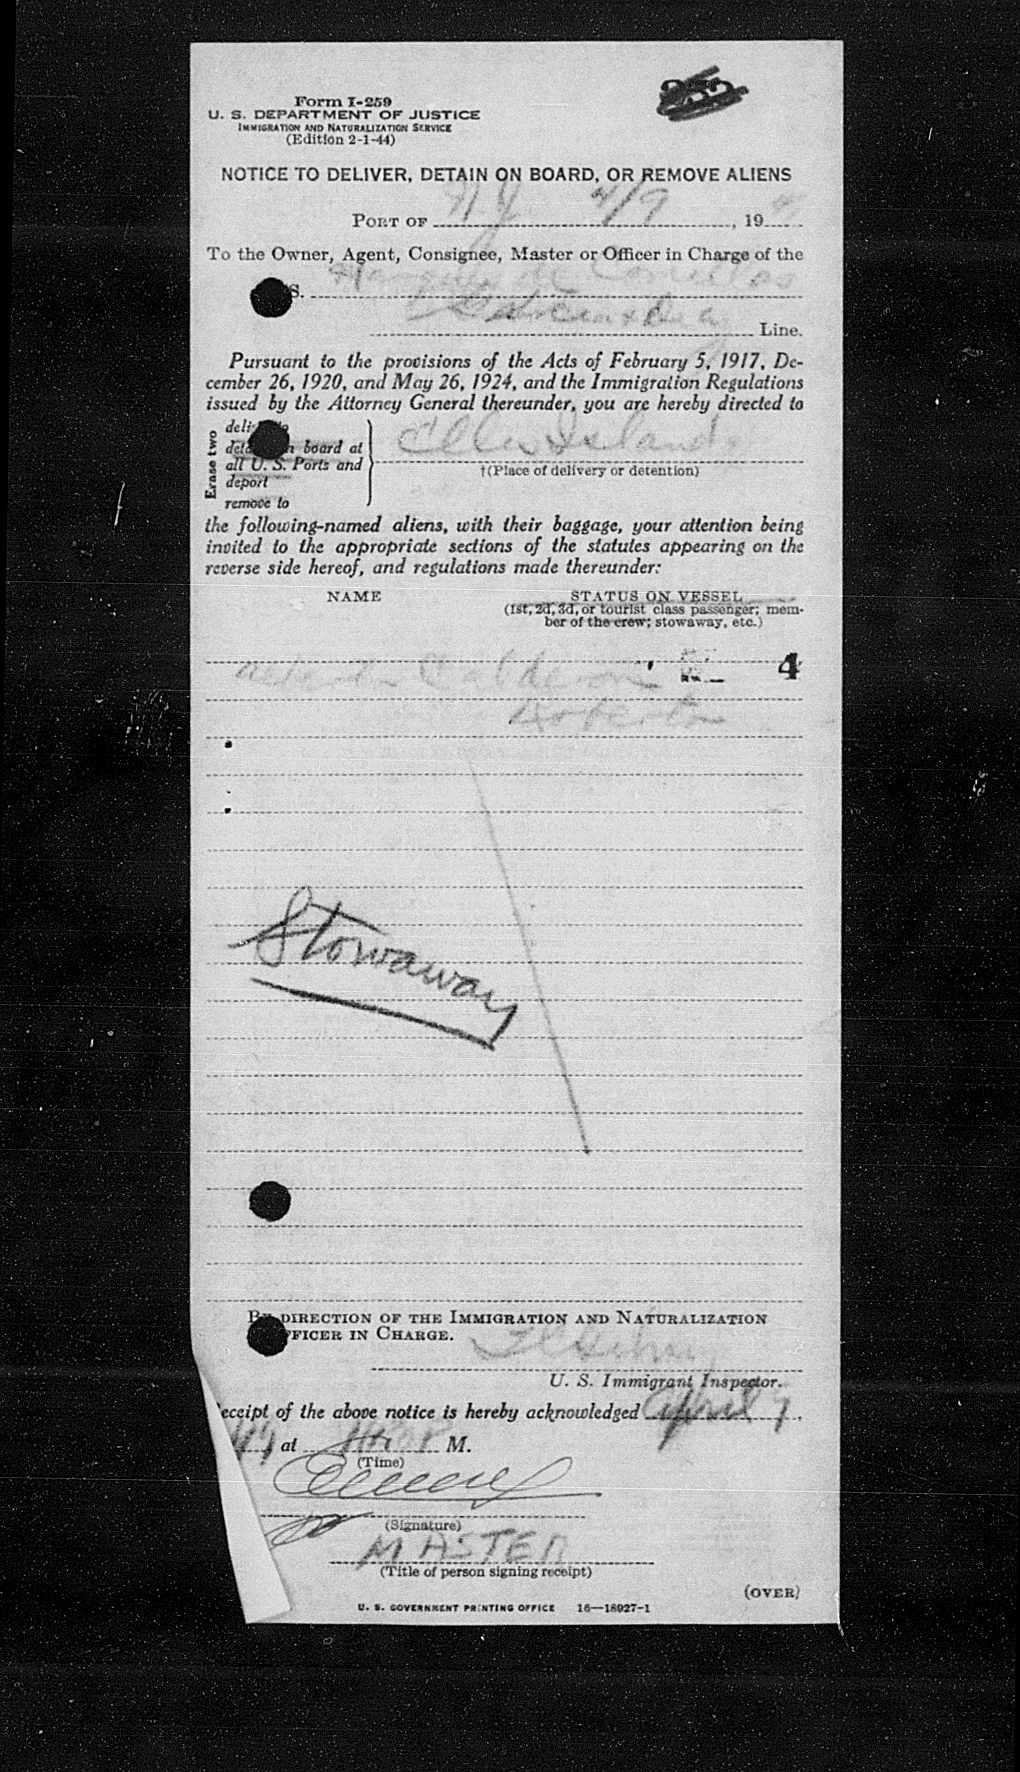 Form I-259
U. S. DEPARTMENT OF JUSTICE
IMMIGRATION AND NATURALIZATION SERVICE
(Edition 2-1-44)
NOTICE TO DELIVER, DETAIN ON BOARD, OR REMOVE ALIENS
PORT OF NY 4/9, 19
To the Owner, Agent, Consignee, Master or Officer in Charge of the
S. Marques de Comillas
Garcia & Diaz Line.
Pursuant to the provisions of the Acts of February 5, 1917, De-
cember 26, 1920, and May 26, 1924, and the Immigration Regulations
issued by the Attorney General thereunder, you are hereby directed to
Erase two
board at
all U. S. Ports and
deport
remove to
Ellis Island
†(Place of delivery or detention)
the following-named aliens, with their baggage, your attention being
invited to the appropriate sections of the statutes appearing on the
reverse side hereof, and regulations made thereunder:
NAME STATUS ON VESSEL
(1st, 2d, 3d, or tourist class passenger; mem-
ber of the crew; stowaway, etc.)
Calderon 4
Roberto
Stowaway
BY DIRECTION OF THE IMMIGRATION AND NATURALIZATION
OFFICER IN CHARGE.
U. S. Immigrant Inspector.
Receipt of the above notice is hereby acknowledged April 9,
at M.
(Time)
(Signature)
MASTER
(Title of person signing receipt)
(OVER)
U. S. GOVERNMENT PRINTING OFFICE 16—18927-1